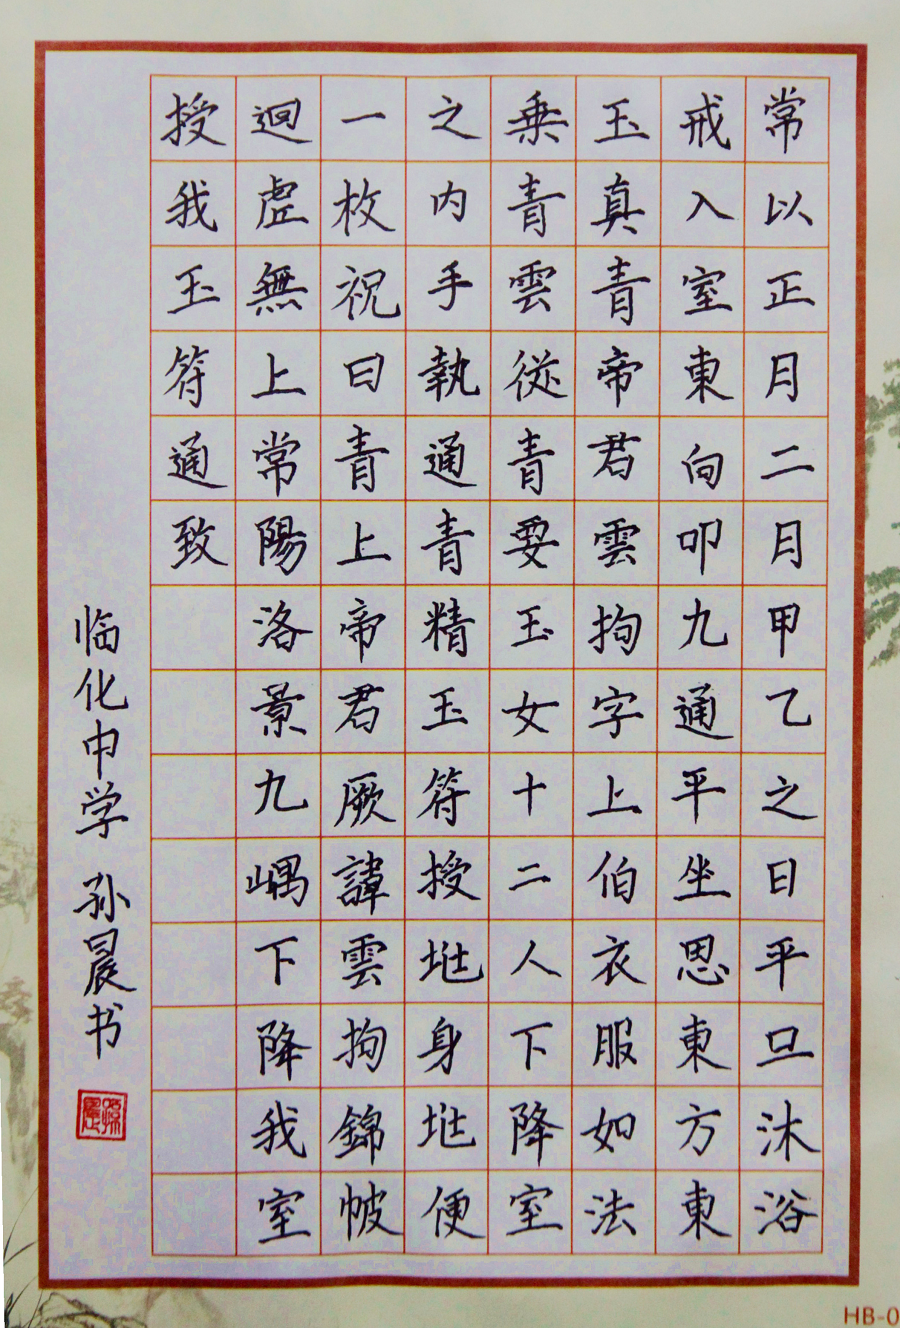 常以正月二月甲乙之日平旦沐浴
戒入室東向叩九通平坐思東方東
玉真青帝君雲拘字上伯衣服如法
乗青雲從青要玉女十二人下降室
之内手執通青精玉符授地身地便
一枚祝曰青上帝君厥諱雲拘錦帔
迴虚無上常陽洛景九嵎下降我室
授我玉符通致
临化中学 孙晨书
HB-0